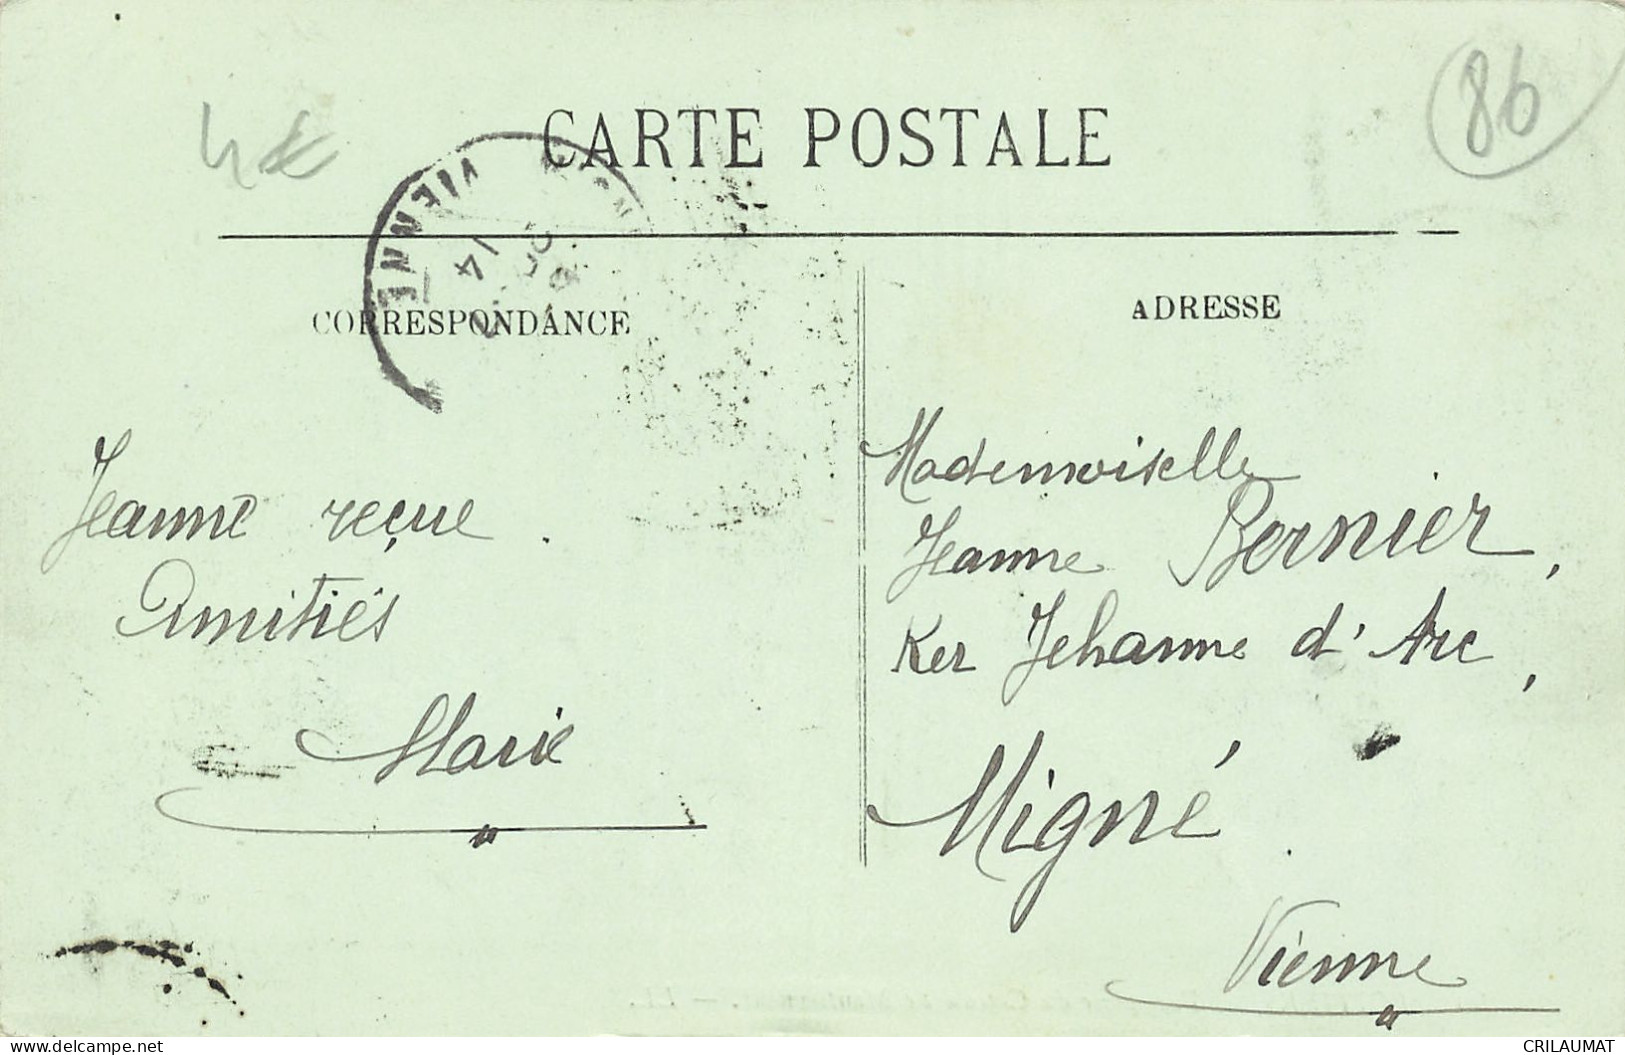 CARTE POSTALE
4€
86
VIENNE
14
CORRESPONDANCE
ADRESSE
Jeanne reçue.
Amitiés
Marie
Mademoiselle
Jeanne Bernier,
Ker Jehanne d'Arc,
Migné.
Vienne
delcampe.net
CRILAUMAT